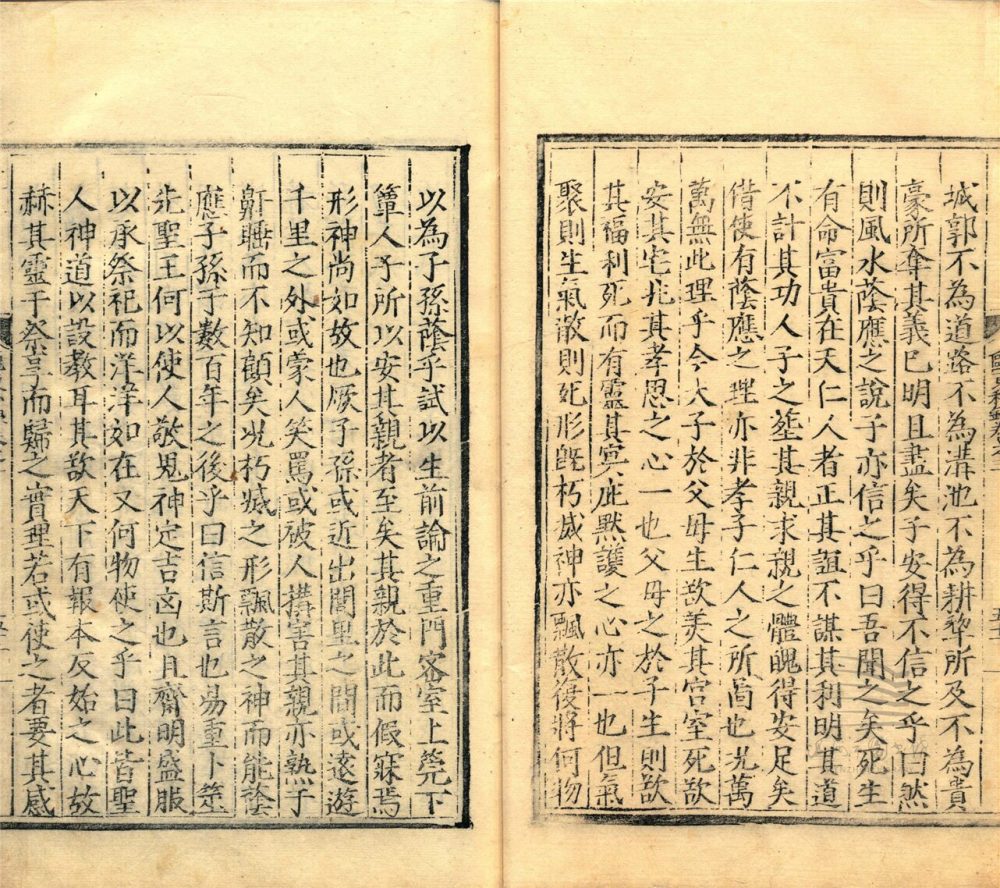 城郭不為道路不為溝池不為耕犂所及不為貴
豪所奪其義已明且盡矣子安得不信之乎曰然
則風水蔭應之說子亦信之乎曰吾聞之矣死生
有命富貴在天仁人者正其誼不謀其利明其道
不計其功人子之塟其親求親之體魄得安足矣
借使有蔭應之理亦非孝子仁人之所啚也况萬
萬無此理乎今夫子於父母生欲美其宫室死欲
安其宅兆其孝思之心一也父母之於子生則欲
其福利死而有靈其㝠庇黙護之心亦一也但氣
聚則生氣散則死形旣朽滅神亦飄散復將何物
以為子孫蔭乎試以生前論之重門密室上莞下
簟人子所以安其親者至矣其親於此而假寐焉
形神尚如故也厥子孫或近出閭里之間或逺遊
千里之外或蒙人笑罵或被人搆害其親亦熟于
鼾睡而不知顧矣况朽滅之形飄散之神而能蔭
應子孫于數百年之後乎曰信斯言也易重卜筮
先聖王何以使人敬鬼神定吉凶也且齋明盛服
以承祭祀而洋洋如在又何物使之乎曰此皆聖
人神道以設教耳其欲天下有報本反始之心故
赫其靈于祭享而歸之實理若或使之者要其感